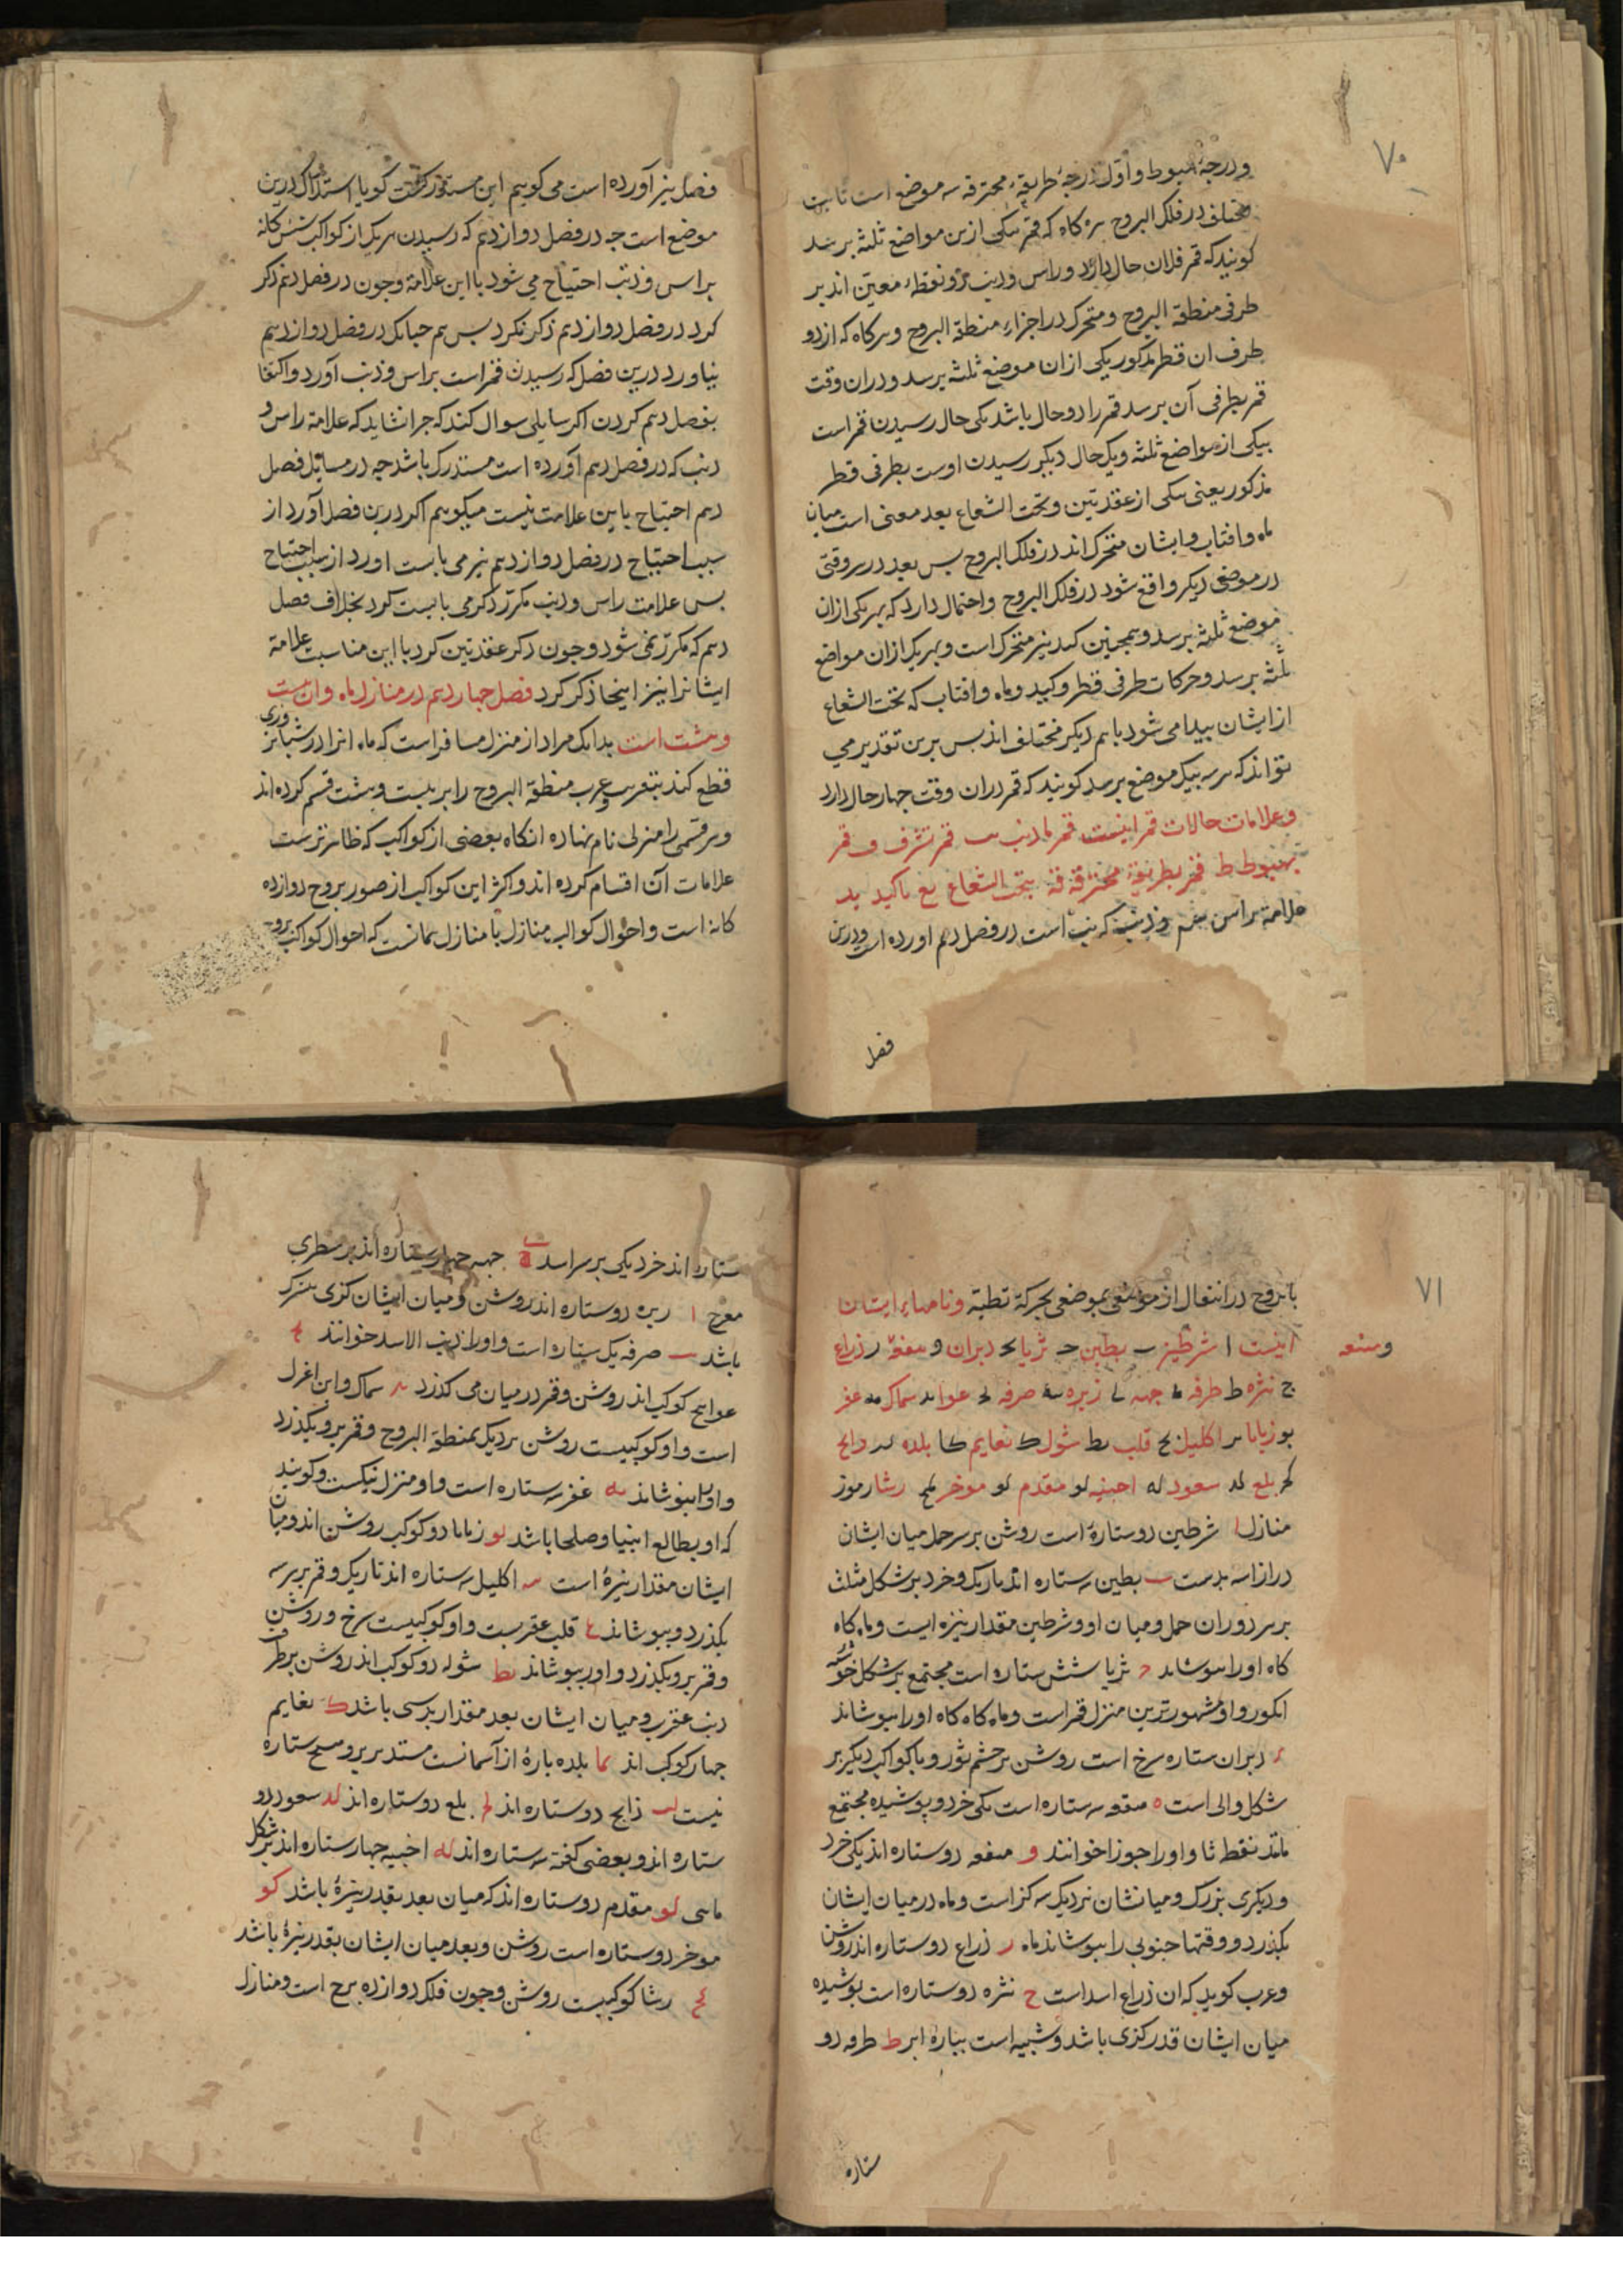 ٧٠
ودرجهٔ هبوط واوّل درجهٔ طریقهٔ محترقه سه موضع است ثابت
مختلف در فلک البروج هرگاه که قمر بیکی ازین مواضع ثلثه برسد
کویند که قمر فلان حال دارد وراس وذنب دو نقطهٔ معین اند بر
طرفی منطقة البروج ومتحرک در اجزاء منطقة البروج وهرکاه که از دو
طرف ان قطر مذکور یکی ازان موضع ثلثه برسد ودران وقت
قمر بطرفی آن برسد قمر را دو حال باشد یکی حال رسیدن قمر است
بیکی از مواضع ثلثه ویک حال دیکر رسیدن اوست بطرفی قطر
مذکور یعنی یکی از عقدتین وتحت الشعاع بعد معنی است میان
ماه وافتاب وایشان متحرک اند در فلک البروج بس بعد در هر وقتی
در موضعی دیکر واقع شود در فلک البروج واحتمال دارد که بهر یکی ازان
موضع ثلثه برسد وهمچنین کید نیز متحرک است وبهر یک ازان مواضع
ثلثه برسد وحرکات طرفی قطر وکید وماه وافتاب که تحت الشعاع
از ایشان پیدا می شود با هم دیکر مختلف اند بس برین تقدیر می
تواند که هر سه بیک موضع برسد کویند که قمر دران وقت جهار حال دارد
وعلامات حالات قمر اینست قمر بذنب ب قمر بشرف ف قمر
بهبوط ط قمر بطریقهٔ محترقه قه بتحت الشعاع یع بالکید ید
علامة براس وذنب که نب است در فصل دهم اورده است ودرین
فصل
فصل نیز آورده است می کویم این مستدرک نیست کویا استدراک درین
موضع است جه در فصل دوازدهم که رسیدن هر یک از کواکب شش کانه
براس وذنب احتیاج می شود با این علامة وجون در فصل دهم ذکر
کرد در فصل دوازدهم ذکر نکرد بس هم جنانک در فصل دوازدهم
نیاورد درین فصل که رسیدن قمر است براس وذنب آورد واکتفا
بفصل دهم کردن اکر سایلی سوال کند که جرا نشاید که علامة راس و
ذنب که در فصل دهم آورده است مستدرک باشد جه در مسایل فصل
دهم احتیاج باین علامت نیست میکویم اکر درین فصل آورد از
سبب احتیاج در فصل دوازدهم نیز می بایست اورد از سبب احتیاج
بس علامت راس وذنب مکرّر ذکر می بایست کرد بخلاف فصل
دهم که مکرّر نمی شود وجون ذکر عقدتین کرد با این مناسبت علامة
ایشانرا نیز اینجا ذکر کرد فصل جهاردهم در منازل ماه وان بیست
وهشت است بدانک مراد از منزل مسافر است که ماه انرا در شبانروزی
قطع کند بتقریب وعرب منطقة البروج را بر بیست وهشت قسم کرده اند
وهر قسمی را منزلی نام نهاده انکاه بعضی از کواکب که ظاهرترست
علامات آن اقسام کرده اند واکثر این کواکب از صور بروج دوازده
کانه است واحوال کواکب منازل با منازل همانست که احوال کواکب بروج
٧١
با بروج در انتقال از موضعی بموضعی بحرکة قطبة ونامهاء ایشان
اینست ا شرطین ب بطین ج ثریا د دبران ه و هنعه ر ذراع
وهنعه
ح نثره ط طرفه جبهه زبره صرفه عوا سماک غفر
یو زبانا اکلیل یح قلب یط شوله ک نعایم کا بلده ذابح
بلع سعود اخبیه کو مقدم موخر رشا رموز
منازل ا شرطین دو ستارهٔ است روشن بر سر حمل میان ایشان
ب بطین سه ستاره اند تاریک وخرد بر شکل مثلث
بر سر دوران حمل ومیان او وشرطین مقدار نیزه ایست وماه کاه
کاه اورا بپوشاند ج ثریا شش ستاره است مجتمع بر شکل خوشه
انکور واو مشهورترین منزل قمر است وماه کاه کاه اورا بپوشاند
د دبران ستاره سرخ است روشن بر چشم ثور وبا کواکب دیکر بر
شکل دالی است ه هقعه سه ستاره است یکی خرد وپوشیده مجتمع
مانند نقط ثا واورا جوزا خوانند و هنعه دو ستاره اند یکی خرد
ودیکری بزرک ومیانشان نزدیک سه کز است وماه در میان ایشان
بکذرد ووقتها جنوبی را بپوشاند ماه ر ذراع دو ستاره اند روشن
وعرب کوید که ان ذراع اسد است ح نثره دو ستاره است پوشیده
میان ایشان قدر کزی باشد وشبیه است بپاره ابر ط طرفه دو
ستاره
ستاره اند خرد یکی بر سر اسد جبهه جهار ستاره اند بر سطری
معوج زبره دو ستاره اند روشن ومیان ایشان کزی بزرک
باشد صرفه یک ستاره است واورا ذنب الاسد خوانند
عوا پنج کوکب اند روشن وقمر در میان می کذرد سماک وان اعزل
است واو کوکبیست روشن نزدیک بمنطقة البروج وقمر برو بکذرد
واورا بپوشاند غفر سه ستاره است واو منزل نیکست وکویند
که او بطالع انبیا وصلحا باشد زبانا دو کوکب روشن اند ومیان
ایشان مقدار نیزهٔ است اکلیل سه ستاره اند تاریک وقمر بر هر سه
بکذرد وبپوشاند قلب عقربست واو کوکبیست سرخ وروشن
وقمر برو بکذرد واورا بپوشاند یط شوله دو کوکب اند روشن بر طرف
ذنب عقرب ومیان ایشان بعد مقدار بدستی باشد ک نعایم
جهار کوکب اند کا بلده پارهٔ از آسمانست مستدیر برو هیچ ستاره
نیست ذابح دو ستاره اند بلع دو ستاره اند سعود دو
ستاره اند وبعضی کفته سه ستاره اند اخبیه جهار ستاره اند بر شکل
مقدم دو ستاره اند که میان بعد بقدر نیزهٔ باشد کو
موخر دو ستاره است روشن وبعد میان ایشان بقدر نیزهٔ باشد
رشا کوکبیست روشن وجون فلک دوازده برج است ومنازل